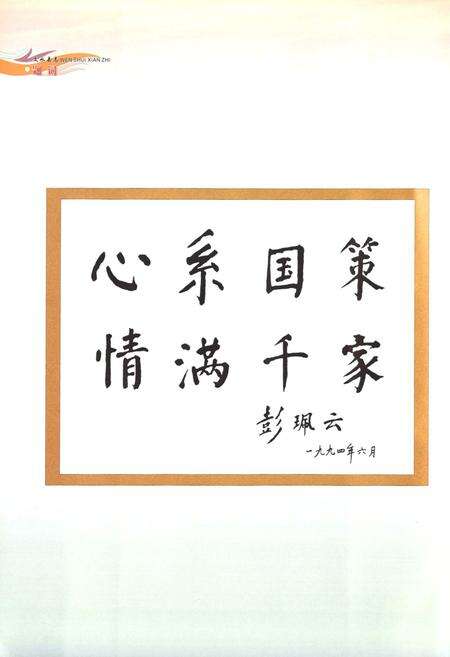 文水县志 WEN SHUI XIAN ZHI
题词
心系国策
情满千家
彭珮云
一九九四年六月